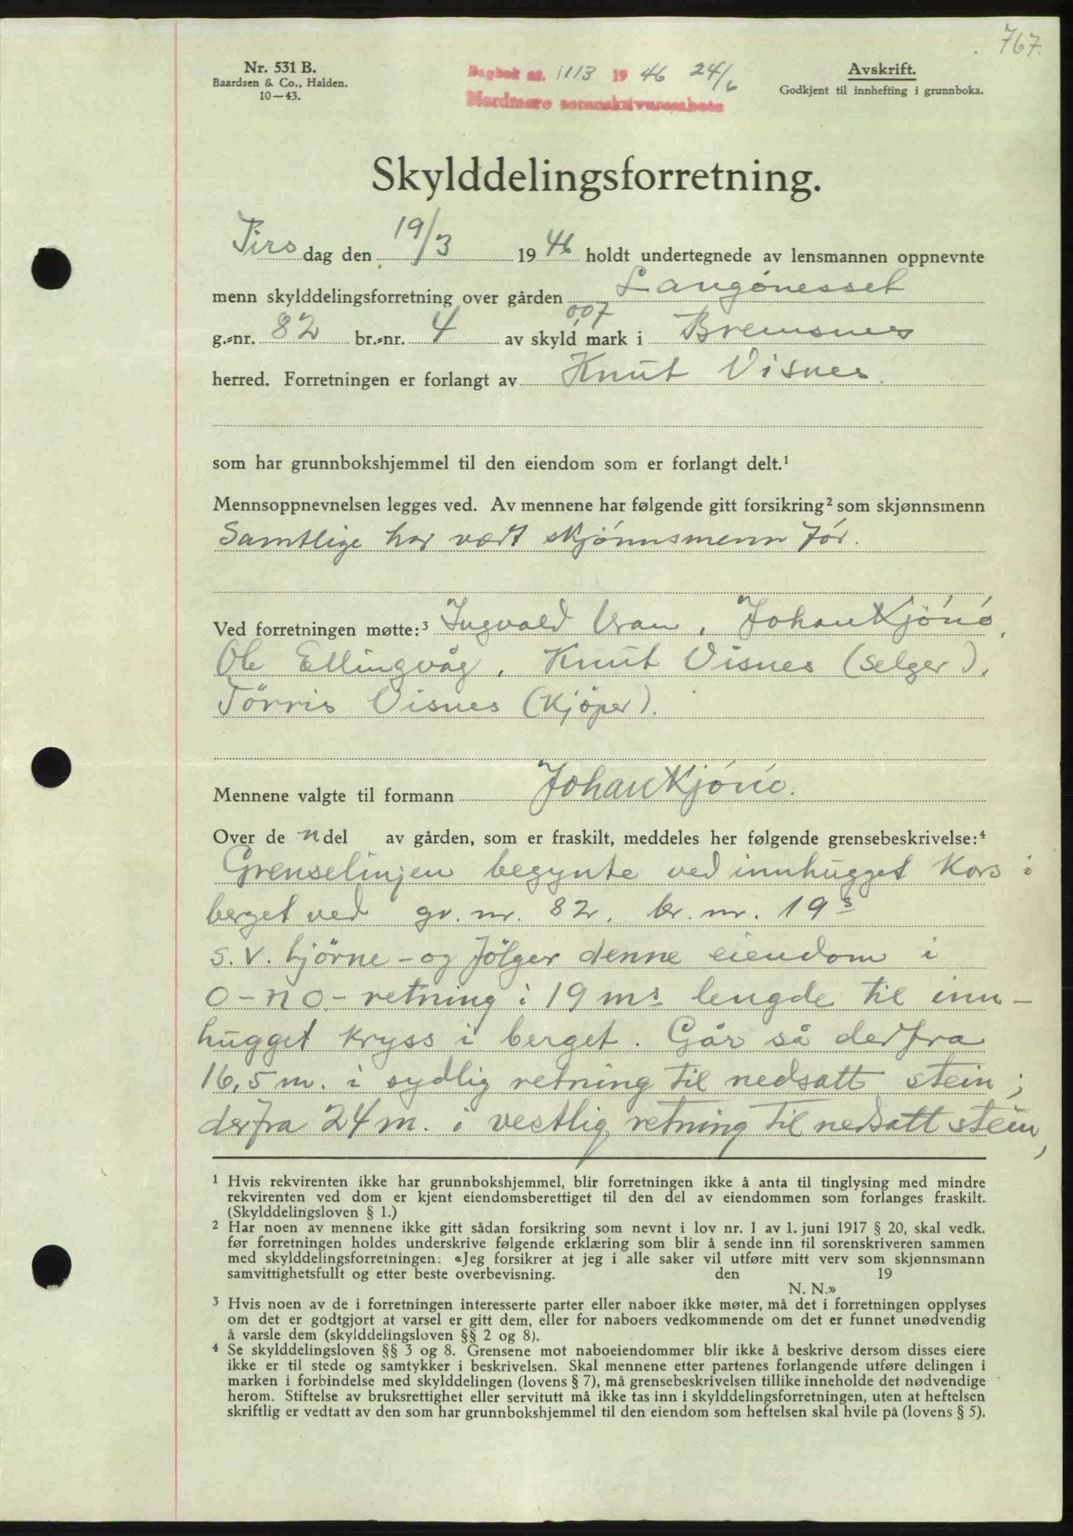 767.
Nr. 531 B.
Baardsen & Co., Halden.
10—43.
Dagbok nr. 1113 1946 24/6
Nordmøre sorenskriverembete
Avskrift.
Godkjent til innhefting i grunnboka.
Skylddelingsforretning.
Tirsdag den 19/3 1946 holdt undertegnede av lensmannen oppnevnte
menn skylddelingsforretning over gården Langönesset
g.-nr. 82 br.-nr. 4 av skyld 0,07 mark i Bremsnes
herred. Forretningen er forlangt av Knut Visnes.
som har grunnbokshjemmel til den eiendom som er forlangt delt.¹
Mennsoppnevnelsen legges ved. Av mennene har følgende gitt forsikring² som skjønnsmenn
Samtlige har vært skjönnsmenn för.
Ved forretningen møtte:³ Ingvald Vran, Johan Kjönö,
Ole Ellingvåg, Knut Visnes (selger),
Törris Visnes (Kjöper).
Mennene valgte til formann Johan Kjönö.
Over de n del av gården, som er fraskilt, meddeles her følgende grensebeskrivelse:⁴
Grenselinjen begynte ved innhugget Kors i
berget ved gr. nr. 82, br. nr. 19ˢ
s.v. hjörne - og fölger denne eiendom i
o-no-retning i 19 mˢ lengde til inn-
hugget kryss i berget. Går så derfra
16,5 m. i sydlig retning til nedsatt stein;
derfra 24 m. i vestlig retning til nedsatt stein,
¹ Hvis rekvirenten ikke har grunnbokshjemmel, blir forretningen ikke å anta til tinglysing med mindre
rekvirenten ved dom er kjent eiendomsberettiget til den del av eiendommen som forlanges fraskilt.
(Skylddelingsloven § 1.)
² Har noen av mennene ikke gitt sådan forsikring som nevnt i lov nr. 1 av 1. juni 1917 § 20, skal vedk.
før forretningen holdes underskrive følgende erklæring som blir å sende inn til sorenskriveren sammen
med skylddelingsforretningen: «Jeg forsikrer at jeg i alle saker vil utføre mitt verv som skjønnsmann
samvittighetsfullt og etter beste overbevisning. den 19
N. N.»
³ Hvis noen av de i forretningen interesserte parter eller naboer ikke møter, må det i forretningen opplyses
om det er godtgjort at varsel er gitt dem, eller for naboers vedkommende om det er funnet unødvendig
å varsle dem (skylddelingsloven §§ 2 og 8).
⁴ Se skylddelingsloven §§ 3 og 8. Grensene mot naboeiendommer blir ikke å beskrive dersom disses eiere
ikke er til stede og samtykker i beskrivelsen. Skal mennene etter partenes forlangende utføre delingen i
marken i forbindelse med skylddelingen (lovens § 7), må grensebeskrivelsen tillike inneholde det nødvendige
herom. Stiftelse av bruksrettighet eller servitutt må ikke tas inn i skylddelingsforretningen, uten at heftelsen
skriftlig er vedtatt av den som har grunnbokshjemmel til den eiendom som heftelsen skal hvile på (lovens § 5).